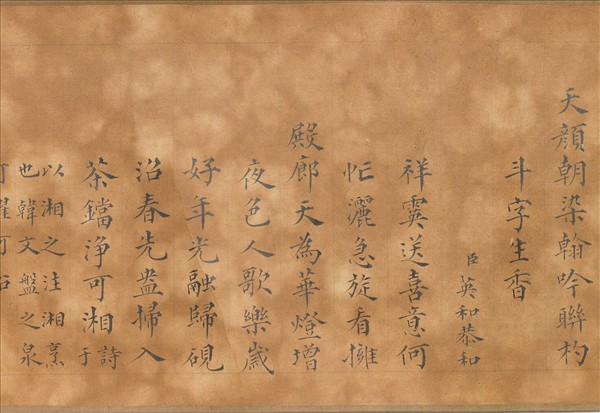 天顏朝染翰吟聯杓
斗字生香
臣英和恭和
祥霙送喜意何
忙灑急旋看擁
殿廊天為華燈增
夜色人歌樂歲
好年光融歸硯
沼春先盎掃入
茶鐺淨可湘詩于
以湘之注湘烹
也韓文盤之泉
可濯可沿